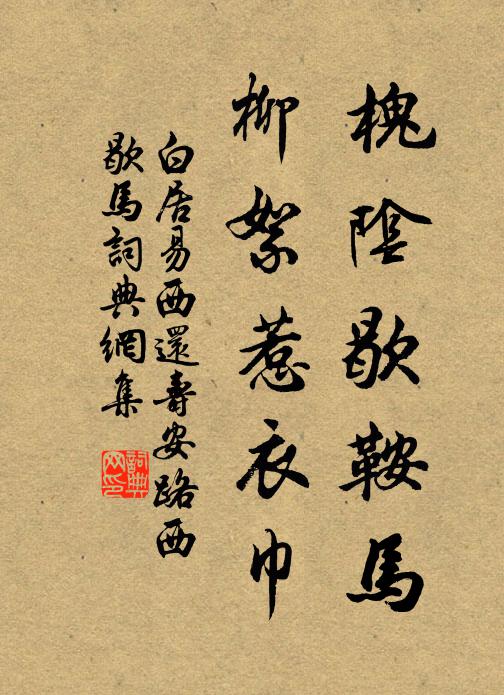 槐陰歇鞍馬
柳絮惹衣巾
白居易西還壽安路西
歇馬詞典網集
詞典网印